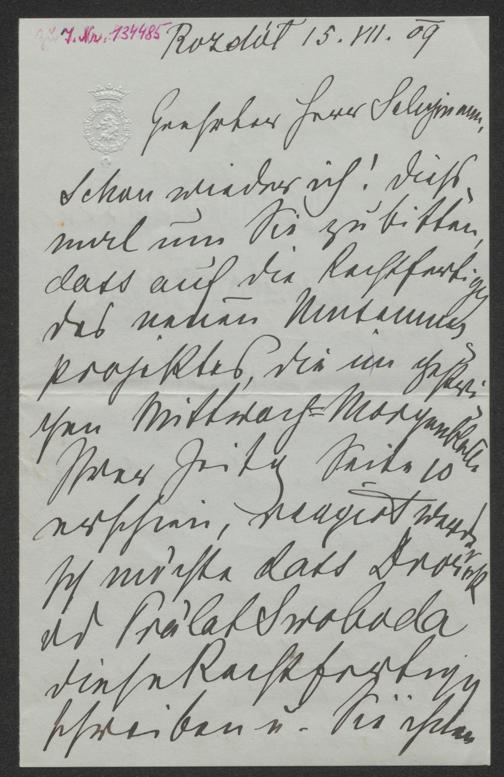 zu J. Nr. 134485
Rozdół 15. VII. 09
Geehrter Herr Seligmann,
Schon wieder ich! Dies-
mal um Sie zu bitten,
dass auf die Rechtfertigg
des neuen Museums
projektes, die im gestri
gen Mittwoch-Morgenblatte
Ihrer Zeitg Seite 10
erschien, reagiert werde.
Ich möchte dass Dvořák
od Prälat Swoboda
diese Rechtfertigg
schreiben u. Sie